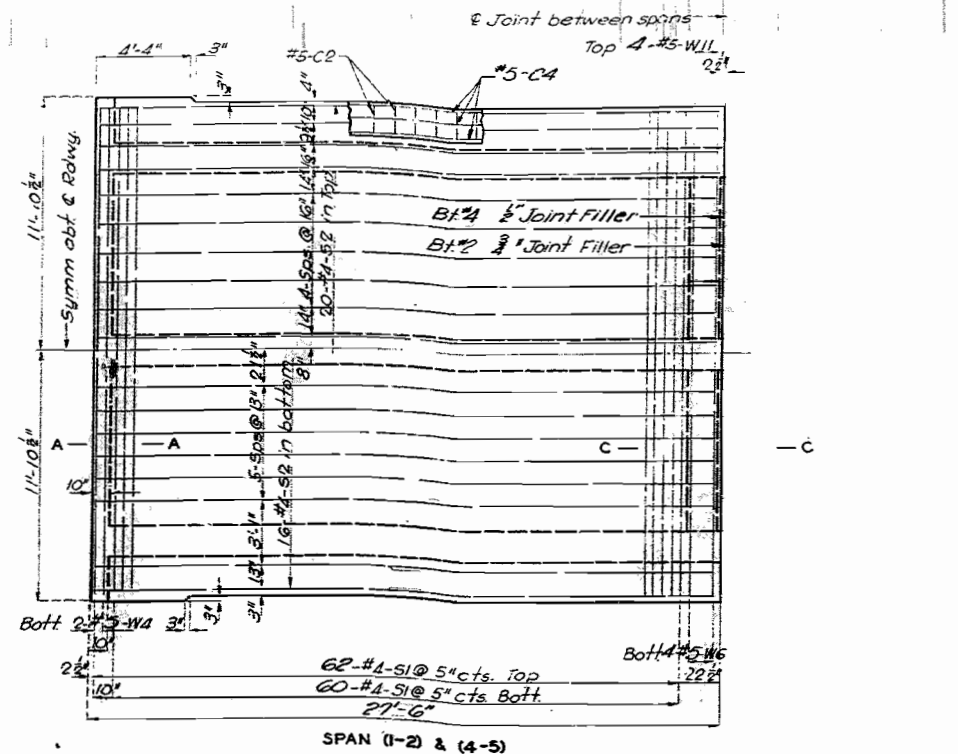 ℄ Joint between spans
Top 4-#5-W11
2½"
4'-4"
3"
#5-C2
#5-C4
3"
11'-10½"
Symm abt. ℄ Rdwy.
14" 4-Sps @ 16"
20-#4-S2 in Top
Bt.#4 ½" Joint Filler
Bt.#2 ¾" Joint Filler
8"
11'-10½"
5-Sps @ 13" 2'1½"
16-#4-S2 in bottom
A
A
C
C
10"
13" 3'-1"
3"
3"
Bott. 2-#5-W4
3"
10"
Bott 4-#5-W6
2½"
62-#4-S1@ 5"cts. Top
22½"
10"
60-#4-S1@ 5"cts. Bott.
27'-6"
SPAN (1-2) & (4-5)